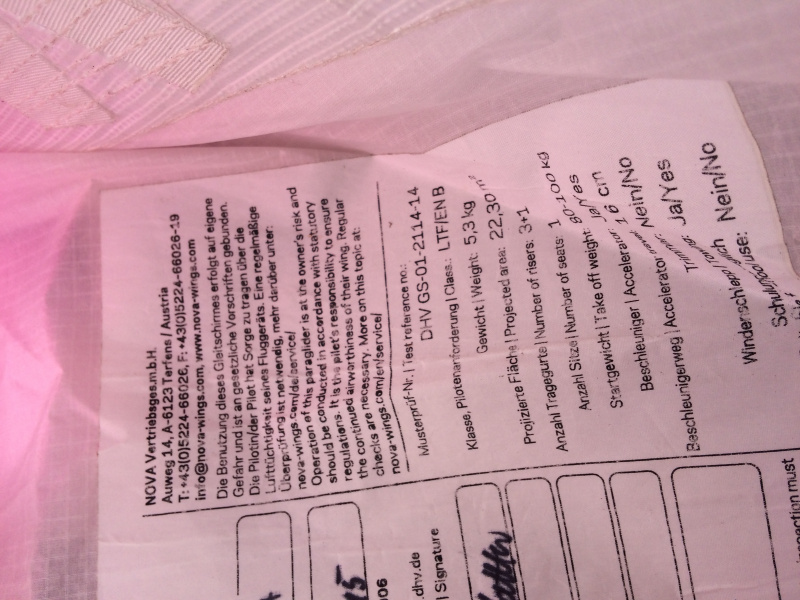 NOVA Vertriebsges.m.b.H.
Auweg 14, A-6123 Terfens | Austria
T: +43(0)5224-66026, F: +43(0)5224-66026-19
info@nova-wings.com, www.nova-wings.com
Die Benutzung dieses Gleitschirmes erfolgt auf eigene
Gefahr und ist an gesetzliche Vorschriften gebunden.
Die Pilotin/der Pilot hat Sorge zu tragen über die
Lufttüchtigkeit seines Fluggeräts. Eine regelmäßige
Überprüfung ist notwendig, mehr darüber unter:
nova-wings.com/de/service/
Operation of this paraglider is at the owner's risk and
should be conducted in accordance with statutory
regulations. It is the pilot's responsibility to ensure
the continued airworthiness of their wing. Regular
checks are necessary. More on this topic at:
nova-wings.com/en/service/
Musterprüf-Nr. | Test reference no.:
DHV GS-01-2114-14
Klasse, Pilotenanforderung | Class.: LTF/EN B
Gewicht | Weight: 5,3 kg
Projizierte Fläche | Projected area: 22,30 m²
Anzahl Tragegurte | Number of risers: 3+1
Anzahl Sitze | Number of seats: 1
Startgewicht | Take off weight: 80-100 kg
Beschleuniger | Accelerator: Ja/Yes
Beschleunigerweg | Accelerator 16 cm
Trimmer: Nein/No
Windenschlepp Ja/Yes
Nein/No
.dhv.de
| Signature
006
15
inspection must